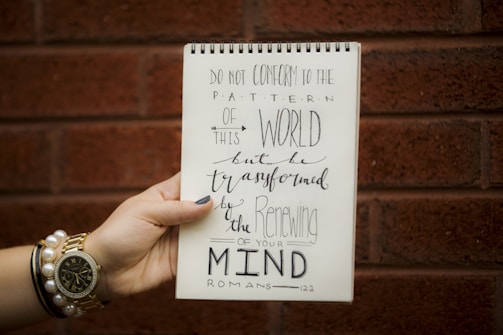 DO NOT CONFORM TO THE
PATTERN
OF THIS WORLD
but be
transformed
by the Renewing
OF YOUR
MIND
ROMANS 12:2